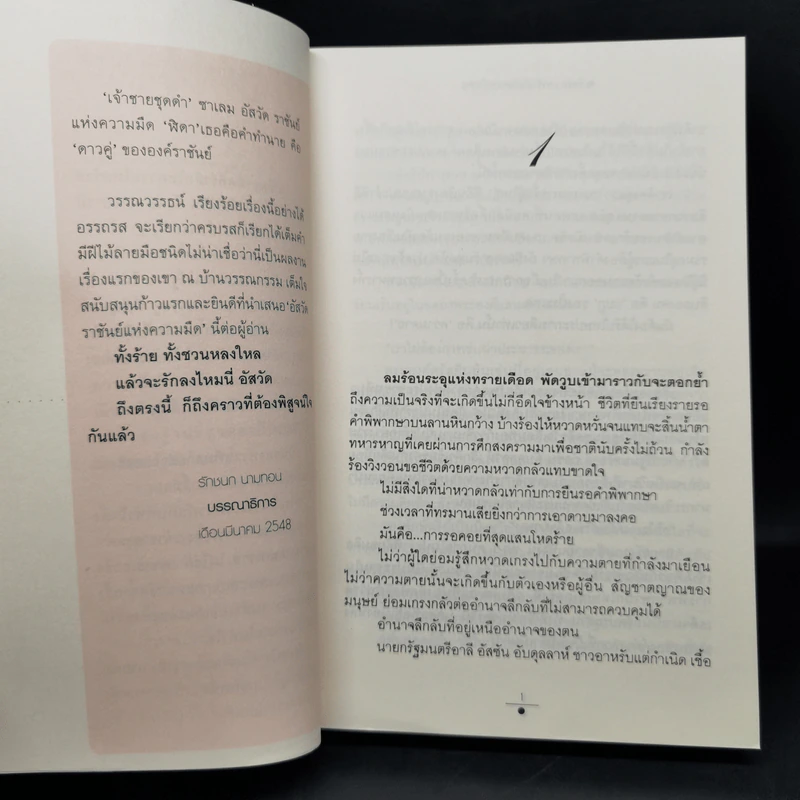 'เจ้าชายชุดดำ' ซาเลม อัสวัด ราชันย์
แห่งความมืด 'ฬิดา'เธอคือคำทำนาย คือ
'ดาวคู่' ขององค์ราชันย์
วรรณวรรธน์ เรียงร้อยเรื่องนี้อย่างได้
อรรถรส จะเรียกว่าครบรสก็เรียกได้เต็มคำ
มีฝีไม้ลายมือชนิดไม่น่าเชื่อว่านี่เป็นผลงาน
เรื่องแรกของเขา ณ บ้านวรรณกรรม เต็มใจ
สนับสนุนก้าวแรกและยินดีที่นำเสนอ'อัสวัด
ราชันย์แห่งความมืด' นี้ต่อผู้อ่าน
ทั้งร้าย ทั้งชวนหลงใหล
แล้วจะรักลงไหมนี่ อัสวัด
ถึงตรงนี้ ก็ถึงคราวที่ต้องพิสูจน์ใจ
กันแล้ว
รักชนก นามทอน
บรรณาธิการ
เดือนมีนาคม 2548
1
ลมร้อนระอุแห่งทรายเดือด พัดวูบเข้ามาราวกับจะตอกย้ำ
ถึงความเป็นจริงที่จะเกิดขึ้นไม่กี่อึดใจข้างหน้า ชีวิตที่ยืนเรียงรายรอ
คำพิพากษาบนลานหินกว้าง บ้างร้องไห้หวาดหวั่นจนแทบจะสิ้นน้ำตา
ทหารหาญที่เคยผ่านการศึกสงครามมาเพื่อชาตินับครั้งไม่ถ้วน กำลัง
ร้องวิงวอนขอชีวิตด้วยความหวาดกลัวแทบขาดใจ
ไม่มีสิ่งใดที่น่าหวาดกลัวเท่ากับการยืนรอคำพิพากษา
ช่วงเวลาที่ทรมานเสียยิ่งกว่าการเอาดาบมาลงคอ
มันคือ...การรอคอยที่สุดแสนโหดร้าย
ไม่ว่าผู้ใดย่อมรู้สึกหวาดเกรงไปกับความตายที่กำลังมาเยือน
ไม่ว่าความตายนั้นจะเกิดขึ้นกับตัวเองหรือผู้อื่น สัญชาตญาณของ
มนุษย์ ย่อมเกรงกลัวต่ออำนาจลึกลับที่ไม่สามารถควบคุมได้
อำนาจลึกลับที่อยู่เหนืออำนาจของตน
นายกรัฐมนตรีอาลี อัสซัน อับดุลลาห์ ชาวอาหรับแต่กำเนิด เชื้อ
1